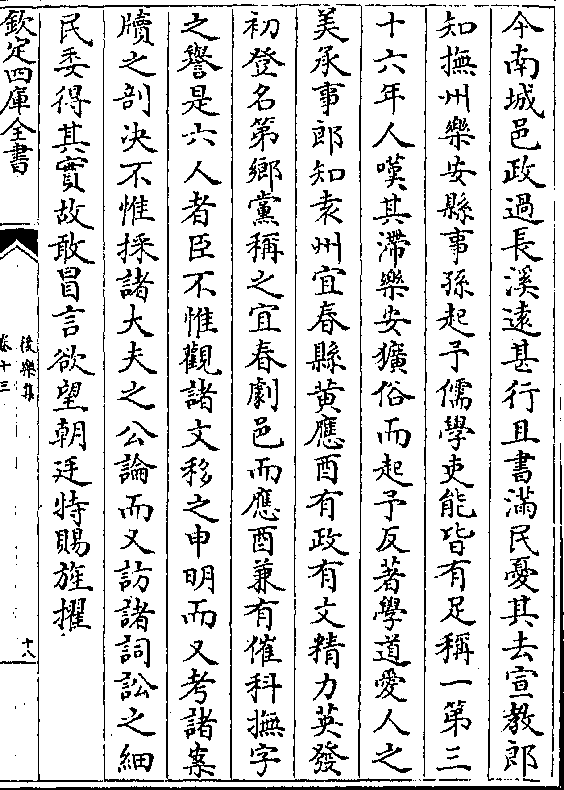 今南城邑政過長溪遠甚行且書滿民憂其去宣教郎
知撫州樂安縣事孫起予儒學吏能皆有足稱一第三
十六年人嘆其滯樂安獷俗而起予反著學道愛人之
美承事郎知袁州宜春縣黃應酉有政有文精力英發
初登名第鄉黨稱之宜春劇邑而應酉兼有催科撫字
之譽是六人者臣不惟觀諸文移之申明而又考諸案
牘之剖决不惟採諸大夫之公論而又訪諸詞訟之細
民委得其實故敢冒言欲望朝廷特賜旌擢
欽定四庫全書
後樂集
卷十三
十八